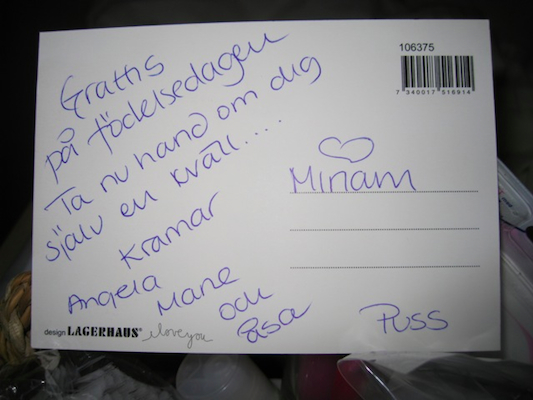 Grattis
på födelsedagen
Ta nu hand om dig
själv en kväll....
Kramar
Angela
Marie
och
Åsa
106375
7 340017 516914
♡
Miriam
Puss
design LAGERHAUS® i love you